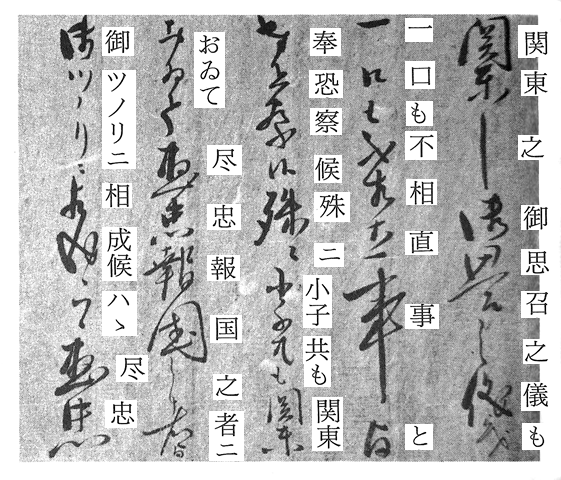 関東之御思召之儀も
一口も不相直事と
奉恐察候殊ニ小子共も関東
おゐて尽忠報国之者ニ
御ツノリニ相成候ハゝ尽忠